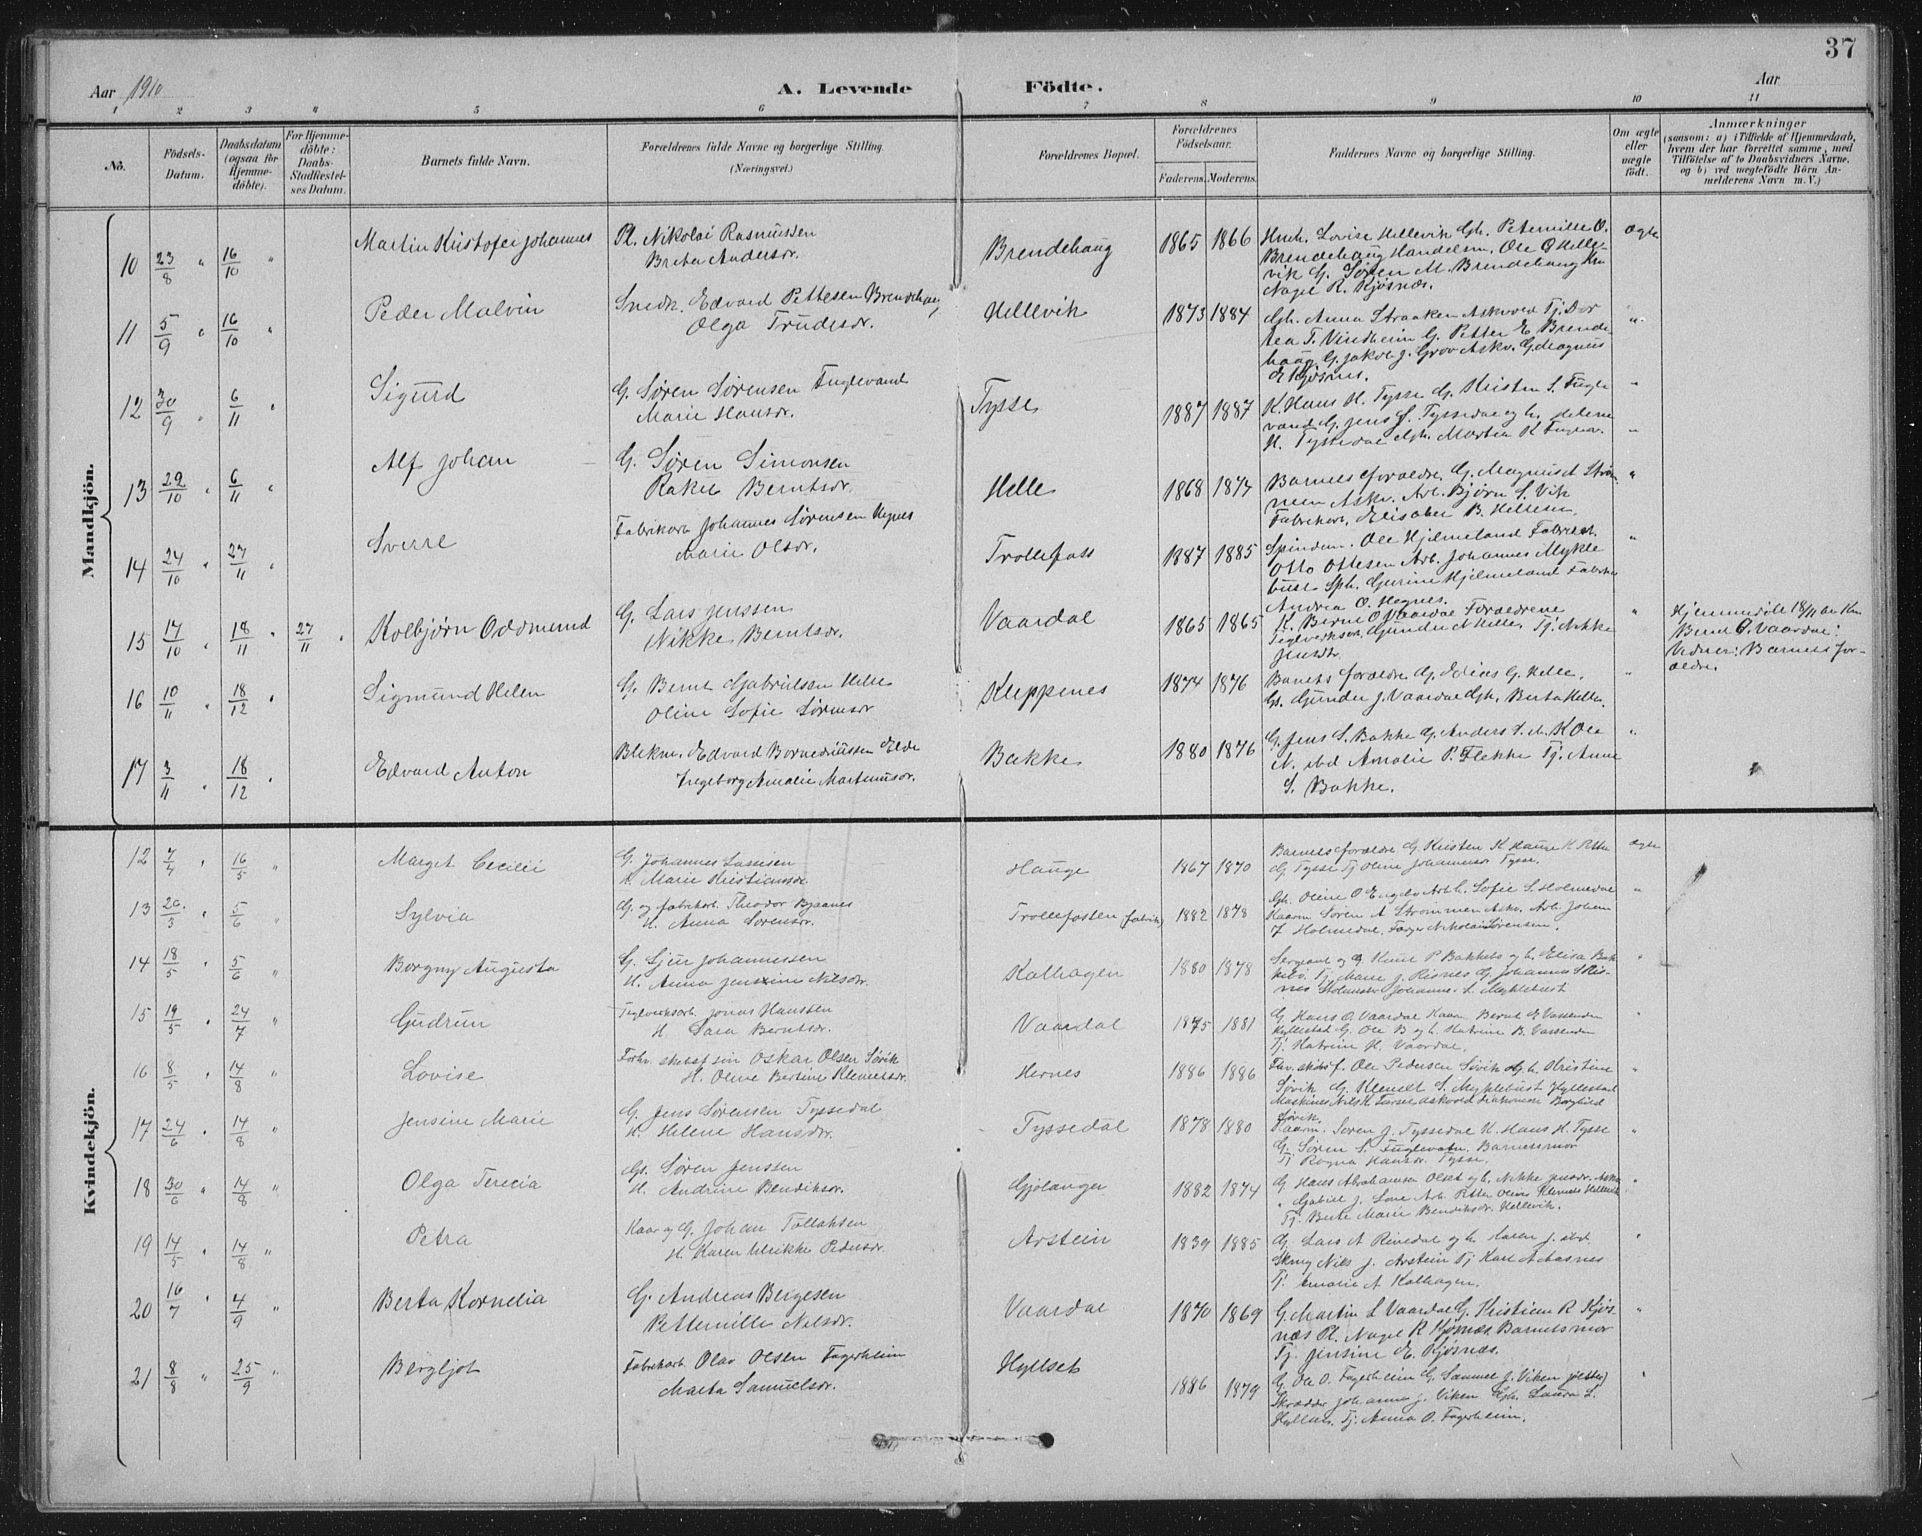 37
Aar 1910
A. Levende Födte.
Aar
1 2 3 4 5 6 7 8 9 10 11
No.
Födsels-Datum.
Daabsdatum (ogsaa for Hjemme-döbte).
For Hjemme-döbte: Daabs-Stadfæstelses Datum.
Barnets fulde Navn.
Forældrenes fulde Navne og borgerlige Stilling.
(Næringsvei.)
Forældrenes Bopæl.
Forældrenes Födselsaar.
Faderens. Moderens.
Faddernes Navne og borgerlige Stilling.
Om ægte eller uægte födt.
Anmærkninger
(saasom: a) i Tilfælde af Hjemmedaab, hvem der har forrettet samme, med Tilföielse af to Daabsvidners Navne, og b) ved uægtefödte Börn Anmelderens Navn m. V.)
Mandkjön.
10 23/8 " 16/10 " Martin Kristofer Johannes
Pl. Nikolai Rasmussen
Brita Andersdr.
Brendehaug 1865 1866
Husm. Lovise Hellevik Gh. Peternille O.
Brendehaug Handelsm. Ole O Helle-
vik G. Søren M. Brendehaug
Nagel R. Kjøsnæs.
Ægte
11 5/9 " 16/10 " Peder Malvin
Snedk. Edvard Pettersen Brendehaug,
Olga Trudesdr.
Hellevik 1873 1884
Gh. Anna Straaken Askvold Tj. Dor
tea T. Vindheim G. Petter E Brende-
haug G. Jakob J. Grov Askv. G. Magnus
E Kjøsnes.
"
12 30/9 " 6/11 " Sigurd
G. Søren Sørensen Fuglevand
Marie Hansdr.
Tysse 1887 1887
K. Hans H. Tysse G. Kristen S. Fugle
vand G. Jens S. Tyssedal og h. Helene
H. Tyssedal Gh. Martia K Fuglev.
"
13 29/10 " 6/11 " Alf Johan
G. Søren Simonsen
Rakel Berntsdr.
Helle 1868 1877
Barnets forældre G. Magnus A Strøm-
men Askv. Arb. Bjørn S. Vik
Fabrikarb. Elisabet B. Hellesen.
"
14 24/10 " 27/11 " Sverre
Fabrikarb. Johannes Sørensen Hegnes
Marie Olsdr.
Trollefoss 1887 1885
Spindem. Ole Hjelmeland Fabrikarb.
Otto Ottesen Arb. Johannes Mykle
bust Sph. Gurine Hjelmeland Fabrika
Andrea O. Hegnes.
"
15 17/10 " 18/11 " 27/11 " Kolbjørn Oddmund
G. Lars Jenssen
Nikke Berntsdr.
Vaardal 1865 1865
K. Bernt O Vaardal Forældrene
Teglverksarb. Gunder N Helle. Tj. Nikke
Jensdtr.
"
Hjemmedøbt 18/11 av Km
Bernt O. Vaardal:
Vidner: Barnets for-
ældre.
16 10/11 " 18/12 " Sigmund Helen
G. Bernt Gabrielsen Helle
Oline Sofie Sørensdr
Kleppenes 1874 1876
Barnets forældre G. Elias G. Helle.
Gs. Gunder J. Vaardal Gh. Berta Helle.
"
17 3/11 " 18/12 " Edvard Anton
Blikm. Edvard Bornediussen Elde
Ingeborg Amalie Martinusdr.
Bakke 1880 1876
G. Jens S. Bakke G. Anders S. ibd. K Ole
N. ibd Amalie P. Flekke Tj. Anne
S. Bakke.
"
Kvindekjön.
12 7/4 " 16/5 " Marget Cecilie
G. Johannes Lassesen
H. Marie Kristiansdr.
Hauge 1867 1870
Barnets forældre G. Kristen K Hauge K. Petter
G Tysse Tj Oline Johannesdr Tysse.
ægte
13 20/3 " 5/6 " Sylvia
G. og fabrikarb. Theodor Bysanes
H. Anna Sørensdr.
Trollefossen (fabrik) 1882 1878
Gh. Oline O Engebø Arb. h. Sofie S. Holmedal
Kaarm Søren A Strømmen Askv. Arb. Johan
J Holmedal, Farger Nikolai Sørensen.
"
14 18/5 " 5/6 " Borgny Augusta
G. Gjur Johannessen
H. Anna Jensine Nilsdr.
Kalhagen 1880 1878
Sergeant og G Knut P Bakkebø og h. Elisa Bak
kebø Tj. Marie J. Risnes G. Johannes S Ris-
nes Skolmester Johannes S. Myklebust
"
15 19/5 " 24/7 " Gudrun
Teglverksarb. Jonas Hanssen
H. Sara Berntsdr.
Vaardal 1875 1881
G. Hans O. Vaardal Kaarm Bernt E Vassenden
Hyllestad G. Ole B og h. Katrine B. Vassenden
Tj. Katrine H. Vaardal.
"
16 8/5 " 14/8 " Lovise
Forhv. skibsf. søn Oskar Olsen Søvik
H. Oline Bertine Klemetsdr.
Hernes 1886 1886
Fhv. skibsf. Ole Pedersen Søvik og h. Kristine
Søvik G. Klemet S. Myklebust Hyllestad
Maskinist Nils K Askvold Diakonisse Bergliot
Søvik.
"
17 24/6 " 14/8 " Jensine Marie
G. Jens Sørensen Tyssedal
H. Helene Hansdr.
Tyssedal 1878 1880
Kaarm. Søren J. Tyssedal K. Hans H. Tysse
G. Søren S. Fuglevatn, Barnets mor
Tj Ragna Hansdr. Tysse.
"
18 30/6 " 14/8 " Olga Terecia
Gs. Søren Jenssen
H. Andrine Bendiksdr.
Gjølanger 1882 1874
G Hans Abrahamsen Olset og h. Nikke Jensdr.
Gabriel J. Arb. Petter Olius Klemets Hellevik
Tj. Berte Marie Bendiksdr. Hellevik.
"
19 14/5 " 14/8 " Petra
Kaar og G. Johan Tollaksen
H. Karen Ulrikke Pedersdr.
Arstein 1839 1885
G. Lars A Rivedal og h. Karen J. ibd.
Skrog Nils J. Arstein Tj Kari A Aasnes
Tj. Amalie A Kalhagen.
"
20 16/7 " 4/9 " Berta Kornelia
G. Andreas Bergesen
Petternille Nilsdr.
Vaardal 1870 1869
G. Martin L Vaardal G. Kristian R Kjøs-
næs Pl. Nagel R Kjøsnæs Barnets mor
Tj. Jensine E. Kjøsnæs.
"
21 8/8 " 25/9 " Bergljot
Fabrikarb. Olav Olsen Fagerheim
Marta Samuelsdr.
Hyllset 1886 1879
G. Ole O. Fagerheim G. Samuel J. Viken Jølster
Skrædder Johannes J. Viken Gh. Laura S.
Tj. Anna O. Fagerheim.
"